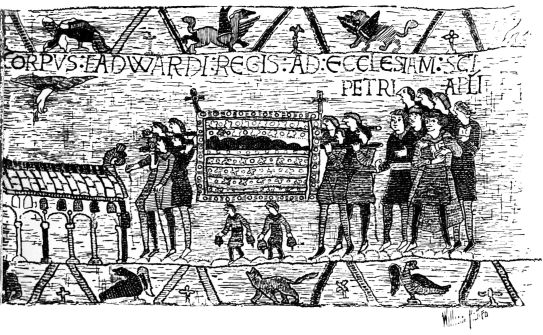 CORPVS : EADWARDI : REGIS : AD : ECCLESIAM : SCI
PETRI APLI